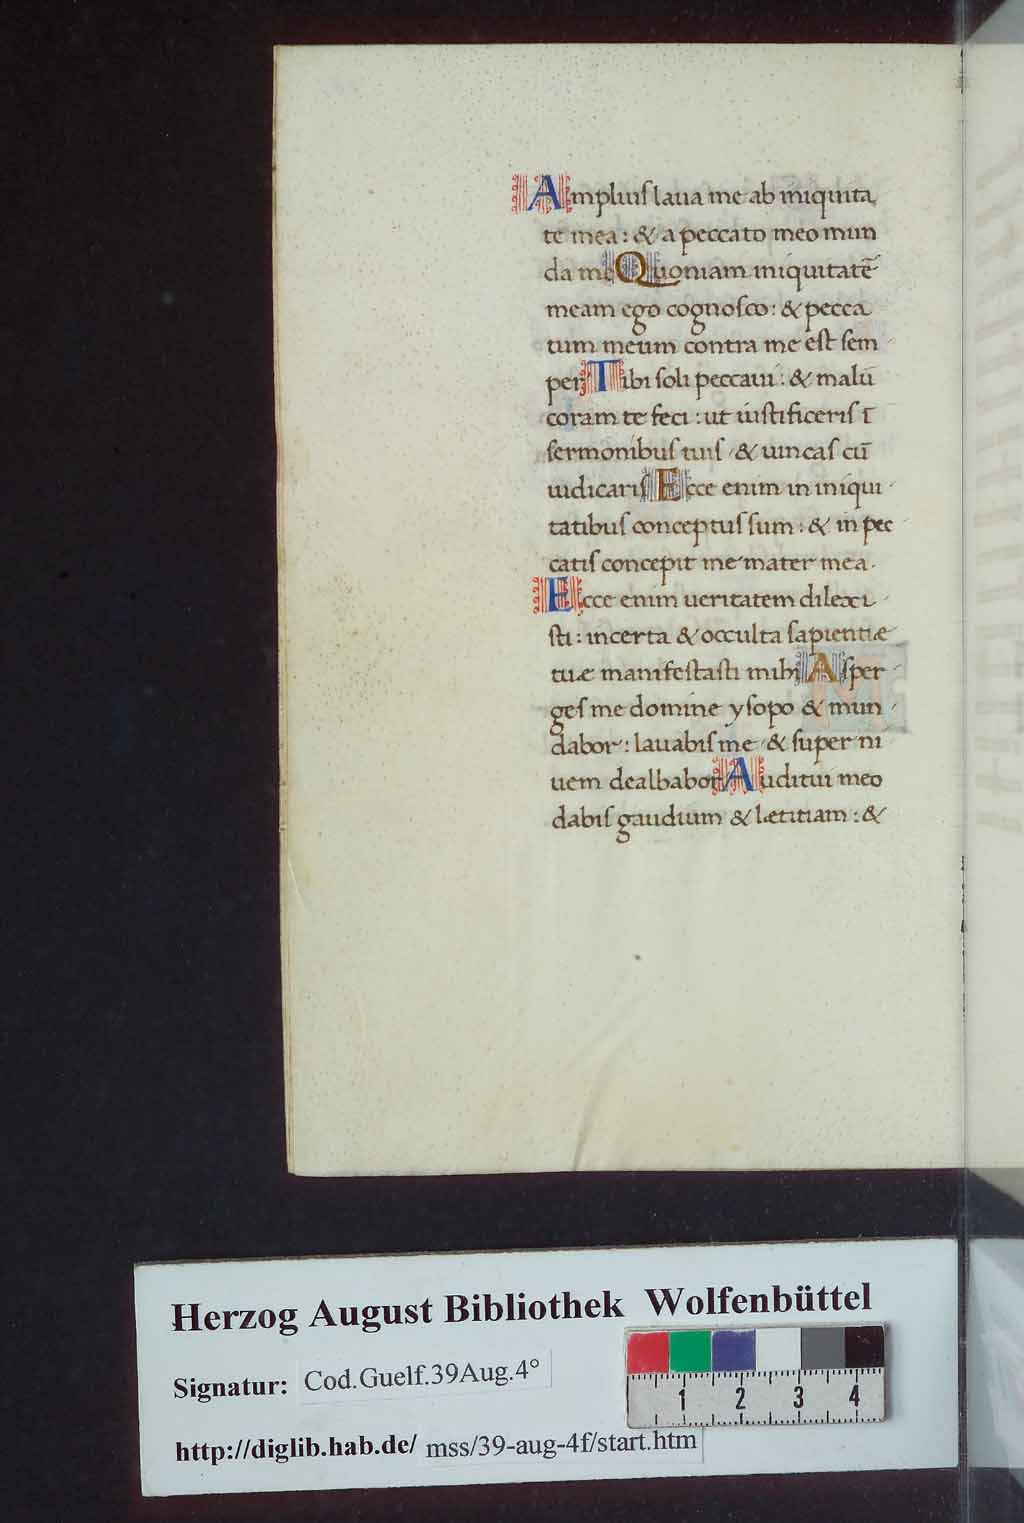 Ampliuſ laua me ab iniquita
te mea : & a peccato meo mun
da me Quoniam iniquitatē
meam ego cognoſco : & pecca
tum meum contra me eſt ſem
per Tibi ſoli peccaui : & malū
coram te feci : ut iuſtificeriſ ī
ſermonibuſ tuiſ & uincaſ cū
iudicariſ Ecce enim in iniqui
tatibuſ conceptuſ ſum : & in pec
catiſ concepit me mater mea.
Ecce enim ueritatem dilexi
ſti : incerta & occulta ſapientiæ
tuæ manifeſtaſti mihi Aſper
geſ me domine yſopo & mun
dabor : lauabiſ me & ſuper ni
uem dealbabor Auditui meo
dabiſ gaudium & lætitiam : &
Herzog August Bibliothek Wolfenbüttel
Signatur: Cod.Guelf.39Aug.4°
1 2 3 4
http://diglib.hab.de/ mss/39-aug-4f/start.htm